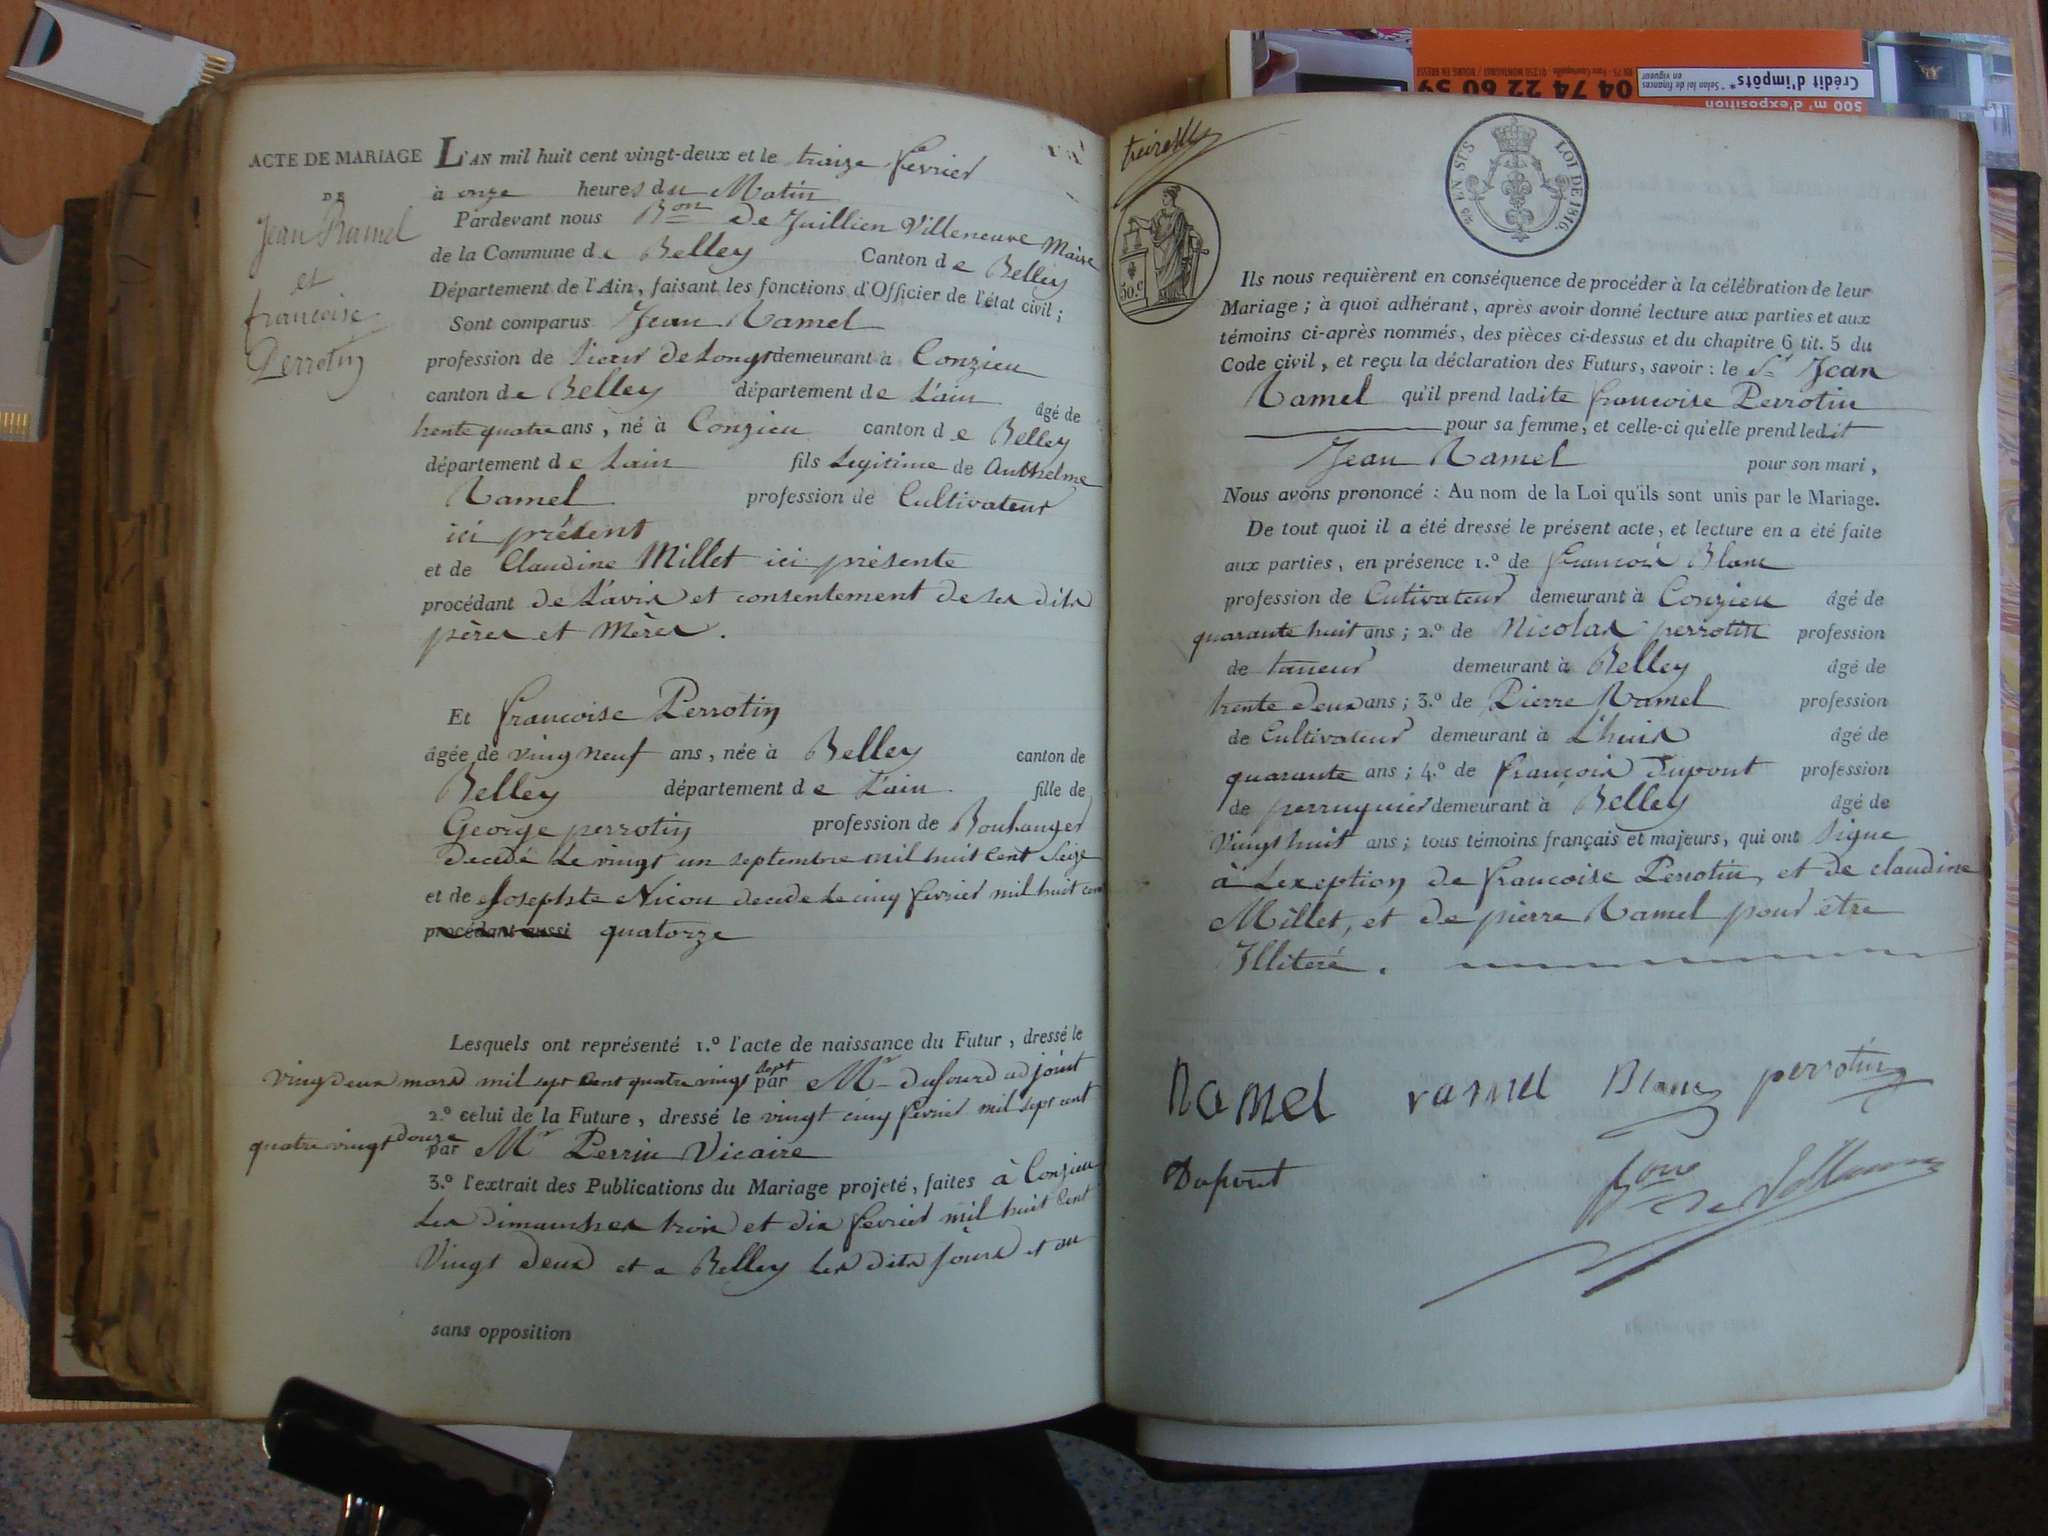 ACTE DE MARIAGE
DE
Jean Ramel
et
francoise
Perrotin
L'AN mil huit cent vingt-deux et le traize fevrier
à onze heures du Matin
Pardevant nous Bon de Juillien Villeneuve Maire
de la Commune de Belley Canton de Belley
Département de l'Ain, faisant les fonctions d'Officier de l'état civil;
Sont comparus Jean Ramel
profession de Sieur de Longs demeurant à Conzieu
canton de Belley département de L'ain âgé de
trente quatre ans, né à Conzieu canton de Belley
département de Lain fils Legitime de Anthelme
Ramel profession de Cultivateur
ici présent
et de Claudine Millet ici présente
procédant de L'avis et consentement de ses dits
pères et Mères.
Et francoise Perrotin
âgée de ving neuf ans, née à Belley canton de
Belley département de L'ain fille de
George perrotin profession de Boulanger
decedé Le vingt un septembre mil huit Cent Seize
et de Josephte Nicou decede Le cinq fevrier mil huit cent
procédant aussi quatorze
Lesquels ont représenté 1.º l'acte de naissance du Futur, dressé le
vingdeux mars mil sept Cent quatre vingt sept par Mr dufourd adjoint
2.º celui de la Future, dressé le vingt cinq fevrier mil sept cent
quatre vingt douze par Mr Perrin Vicaire
3.º l'extrait des Publications du Mariage projeté, faites à Conzieu
Les dimanches trois et dix fevrier mil huit Cent
Vingt deux et a Belley Les dits jours et an
sans opposition
500 m² d'exposition
Crédit d'impôts*
*Selon loi de finances
en vigueur
04 74 22 60 59
01250 MONTAGNAT / BOURG EN BRESSE
50.c
25 EN SUS
LOI DE 1816.
Ils nous requièrent en conséquence de procéder à la célébration de leur
Mariage; à quoi adhérant, après avoir donné lecture aux parties et aux
témoins ci-après nommés, des pièces ci-dessus et du chapitre 6 tit. 5 du
Code civil, et reçu la déclaration des Futurs, savoir: le Sr Jean
Ramel qu'il prend ladite francoise Perrotin
pour sa femme, et celle-ci qu'elle prend ledit
Jean Ramel pour son mari,
Nous avons prononcé: Au nom de la Loi qu'ils sont unis par le Mariage.
De tout quoi il a été dressé le présent acte, et lecture en a été faite
aux parties, en présence 1.º de francois Blanc
profession de Cutivateur demeurant à Conzieu âgé de
quarante huit ans; 2.º de Nicolas perrotin profession
de taneur demeurant à Belley âgé de
trente deux ans; 3.º de Pierre Ramel profession
de Cultivateur demeurant à L'huis âgé de
quarante ans; 4.º de françois Dupont profession
de perruquier demeurant à Belley âgé de
Vingt huit ans; tous témoins français et majeurs, qui ont Signe
à Lexeption de francoise Perrotin, et de claudine
Millet, et de pierre Ramel pour être
Illiteré.
Ramel ramel Blanc perrotin
Dupont